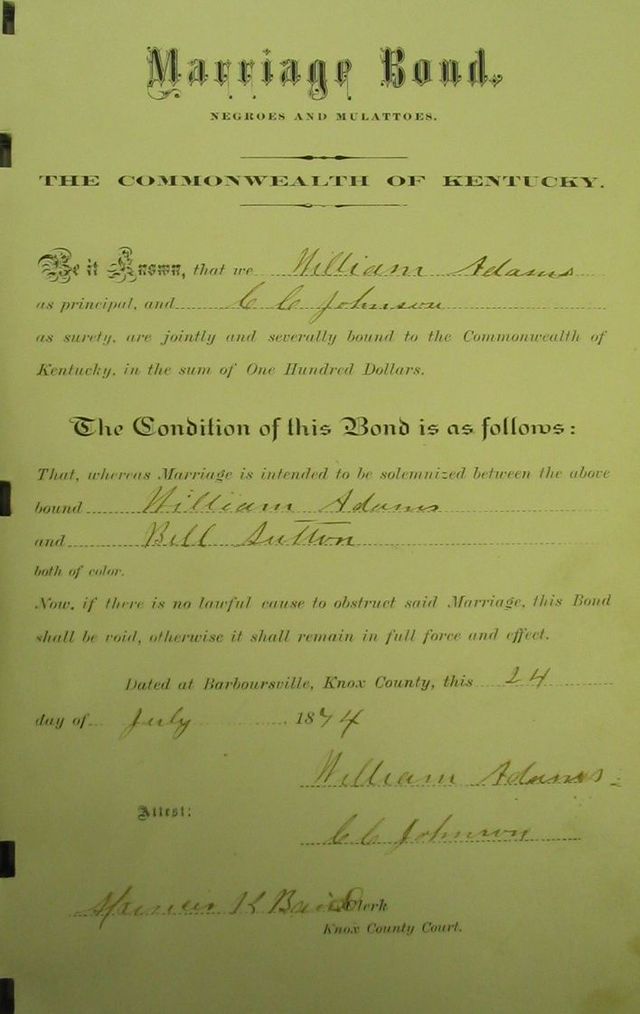 Marriage Bond.
NEGROES AND MULATTOES.
THE COMMONWEALTH OF KENTUCKY.
Be it Known, that we William Adams
as principal, and C C Johnson
as surety, are jointly and severally bound to the Commonwealth of
Kentucky, in the sum of One Hundred Dollars.
The Condition of this Bond is as follows:
That, whereas Marriage is intended to be solemnized between the above
bound William Adams
and Bell Sutton
both of color.
Now, if there is no lawful cause to obstruct said Marriage, this Bond
shall be void, otherwise it shall remain in full force and effect.
Dated at Barboursville, Knox County, this 24
day of July 1874
William Adams
Attest:
C C Johnson
K Clerk
Knox County Court.